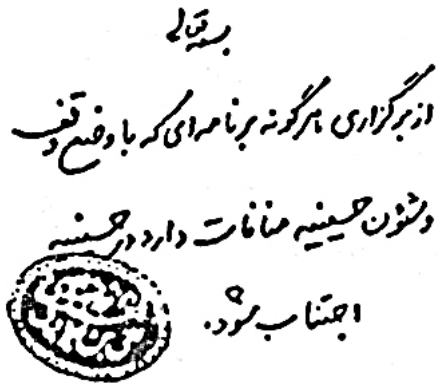 بسمه تعالی
از برگزاری هرگونه برنامه‌ای که با وضع وقف
و شئون حسینیه منافات دارد در حسینیه
اجتناب شود.